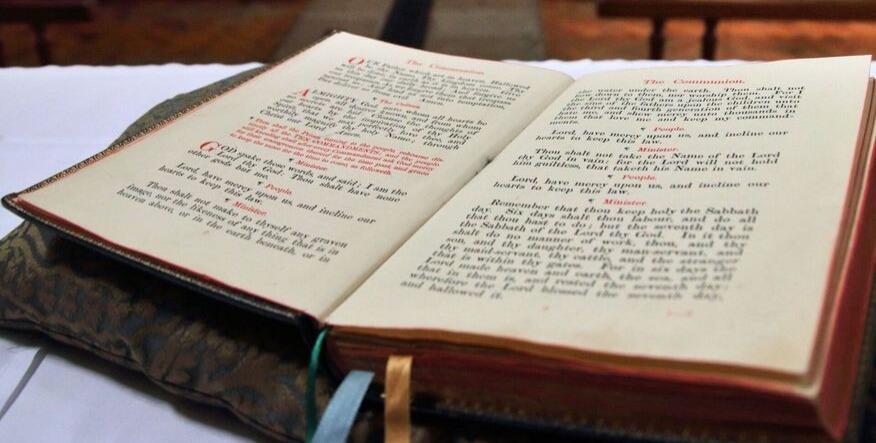 The Communion.
OUR Father which art in heaven, Hallowed
be thy Name,
into temptation
Amen.
The Collect.
ALMIGHTY God, unto whom all hearts be
open, all desires known, and from whom
no secrets are hid: Cleanse the thoughts of our
hearts by the inspiration of thy Holy
Spirit, that we may perfectly love thee, and
worthily magnify thy holy Name; through
Christ our Lord. Amen.
¶ Then shall the Priest, turning to the people, rehearse dis-
tinctly all the TEN COMMANDMENTS; and the people
GOD spake these words, and said; I am the
Lord thy God: Thou shalt have none
other gods but me.
¶ People.
Lord, have mercy upon us, and incline our
hearts to keep this law.
¶ Minister.
Thou shalt not make to thyself any graven
image, nor the likeness of any thing that is in
heaven above, or in the earth beneath, or in
The Communion.
the water under the earth. Thou shalt not
bow down to them, nor worship them: For I
the Lord thy God am a jealous God, and visit
the sins of the fathers upon the children unto
the third and fourth generation of them that
hate me, and shew mercy unto thousands in
them that love me and keep my command-
ments.
¶ People.
Lord, have mercy upon us, and incline our
hearts to keep this law.
¶ Minister.
Thou shalt not take the Name of the Lord
thy God in vain: for the Lord will not hold
him guiltless, that taketh his Name in vain.
¶ People.
Lord, have mercy upon us, and incline our
hearts to keep this law.
¶ Minister
Remember that thou keep holy the Sabbath
day. Six days shalt thou labour, and do all
that thou hast to do; but the seventh day is
the Sabbath of the Lord thy God. In it thou
shalt do no manner of work, thou, and thy
son, and thy daughter, thy man-servant, and
thy maid-servant, thy cattle, and the stranger
that is within thy gates. For in six days the
Lord made heaven and earth, the sea, and all
that in them is, and rested the seventh day:
wherefore the Lord blessed the seventh day,
and hallowed it.